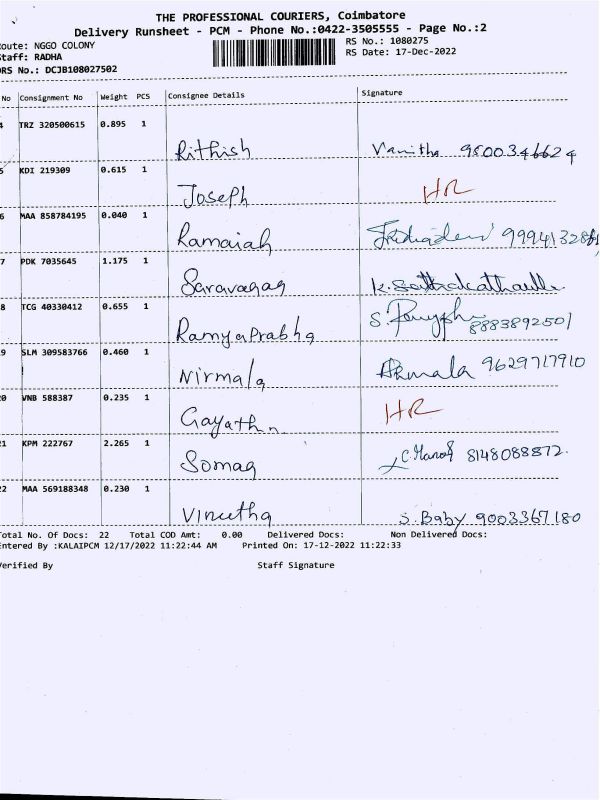 THE PROFESSIONAL COURIERS, Coimbatore
Delivery Runsheet - PCM - Phone No.:0422-3505555 - Page No.:2
oute: NGGO COLONY RS No.: 1080275
Staff: RADHA RS Date: 17-Dec-2022
DRS No.: DCJB108027502
No Consignment No Weight PCS Consignee Details Signature
4 TRZ 320500615 0.895 1
Rithish Vanitha 9800346624
5 KDI 219309 0.615 1
Joseph HR
6 MAA 858784195 0.040 1
Ramaiah
7 PDK 7035645 1.175 1
Saravanan
8 TCG 40330412 0.655 1
RamyaPrabha 8883892501
9 SLM 309583766 0.460 1
Nirmala 9629717910
0 VNB 588387 0.235 1
Gayathri HR
1 KPM 222767 2.265 1
Soman C. Manoj 8148088872.
22 MAA 569188348 0.230 1
Vineetha S. Baby 9003367180
Total No. Of Docs: 22 Total COD Amt: 0.00 Delivered Docs: Non Delivered Docs:
Entered By :KALAIPCM 12/17/2022 11:22:44 AM Printed On: 17-12-2022 11:22:33
Verified By Staff Signature